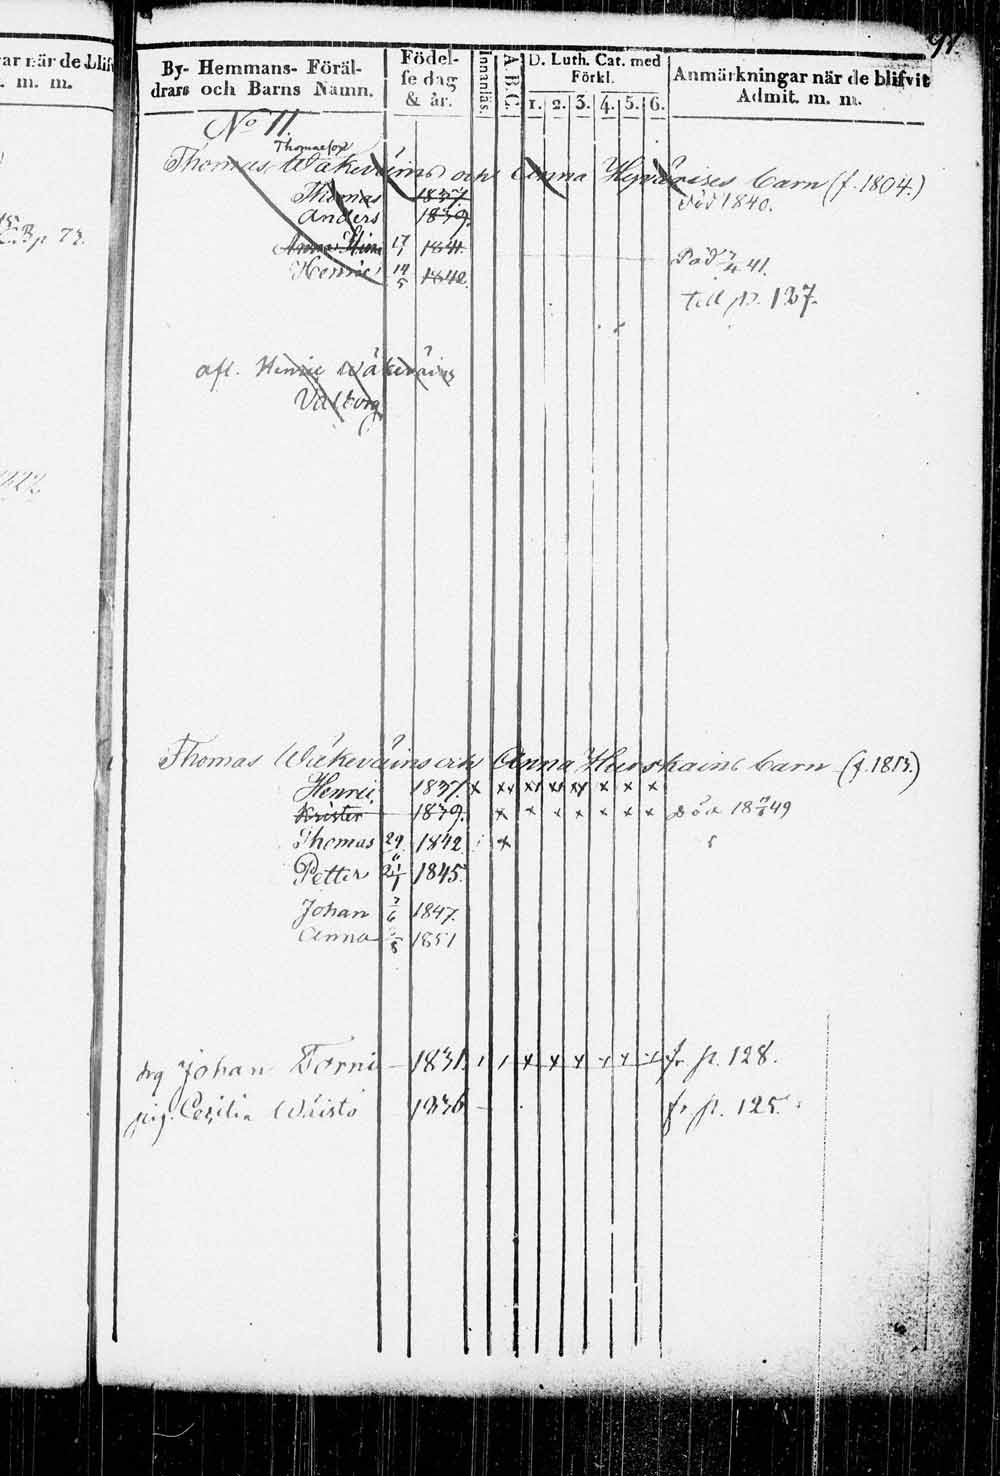 ar när de blifv
. m. m.
p 72.
91.
By- Hemmans- Föräl-
drars och Barns Namn.
Födel-
se dag
& år.
Innanläs.
A.B.C.
D. Luth. Cat. med
Förkl.
1. 2. 3. 4. 5. 6.
Anmärkningar när de blifvit
Admit. m. m.
No 11.
Thomas Wäkeväins och Anna Hyvärises barn (f. 1804.)
Thomas 1837. död 1840.
Anders 1839.
Anna 17/1 1841. död 7/4 41.
Henric 14/5 1842.
till p. 137.
afl. Henric Wäkeväins
Valborg
Thomas Wäkeväins och Anna Huuskains barn (f. 1813.)
Henric 1837. x xx xx xx xx x x x
Krister 1839. x x x x x x x död 49
Thomas 29 1842 x
Petter 1845.
Johan 7/6 1847.
Anna 1851
drg Johan Torni 1831. x x x x x x fr p. 128.
pig. Cecilia Wäistö 1836 fr p. 125.